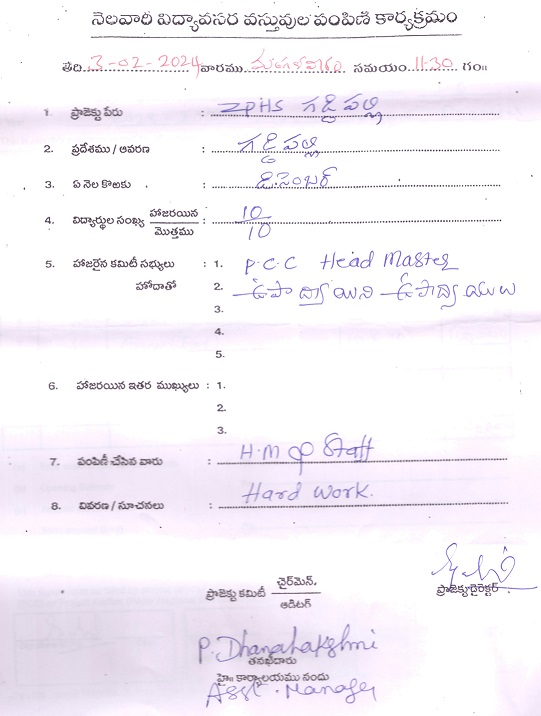 నెలవారి విద్యావసర వస్తువుల పంపిణి కార్యక్రమం
తేది. 3-02-2024 వారము మంగళవారం సమయం. 11-30 గం॥
1. ప్రాజెక్టు పేరు : ZPHS గడ్డిపల్లి
2. ప్రదేశము / ఆవరణ : గడ్డిపల్లి
3. ఏ నెల కొఱకు : డిసెంబర్
4. విద్యార్థుల సంఖ్య హాజరయిన / మొత్తము : 10 / 10
5. హాజరైన కమిటీ సభ్యులు : 1. P.C.C Head Master
హోదాతో 2. ఉపాధ్యాయిని ఉపాధ్యాయులు
3.
4.
5.
6. హాజరయిన ఇతర ముఖ్యులు : 1.
2.
3.
7. పంపిణీ చేసిన వారు : H.M & Staff
8. వివరణ / సూచనలు : Hard work.
ప్రాజెక్టు కమిటీ చైర్‌మెన్. / ఆడిటర్
ప్రాజెక్టుడైరెక్టర్
P. Dhanalakshmi
తనఖీదారు
హై॥ కార్యాలయము నందు
Asst. Manager